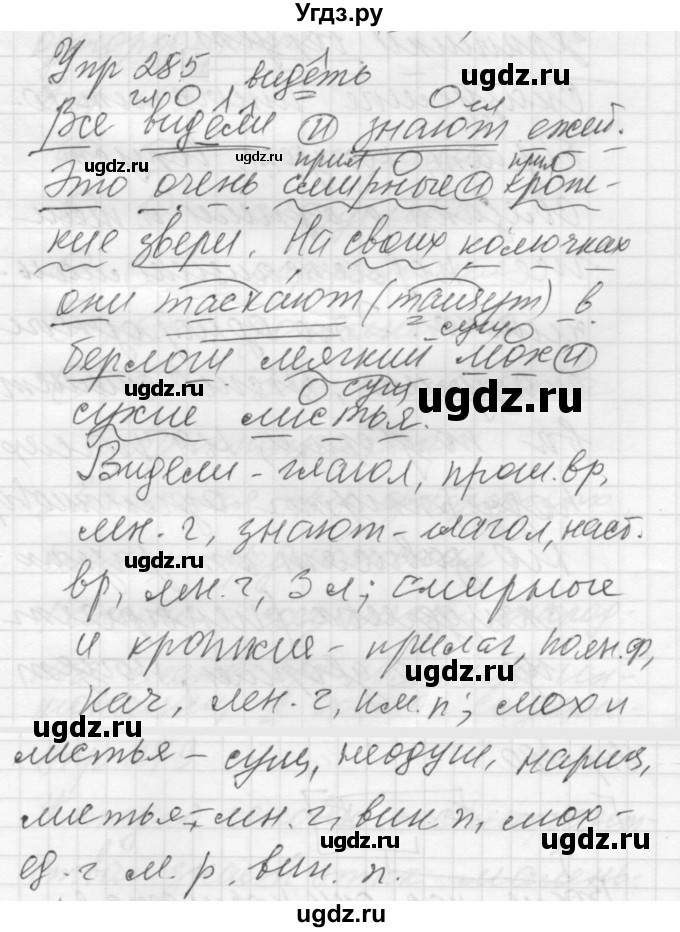 Угдз.ру
Упр 285
видеть
гл гл
Все видели и знают ежей.
прил прил
Это очень смирные и крот-
кие звери. На своих колючках
они таскают (тащут) в
сущ
берлоги мягкий мох и
сущ
сухие листья.
Видели – глагол, прош. вр,
мн. ч, знают – глагол, наст.
вр, мн. ч, 3 л; смирные
и кроткие – прилаг, полн. ф,
кач, мн. ч, им. п; мох и
листья – сущ, неодуш, нариц,
листья – мн. ч, вин п, мох –
ед. ч м. р. вин. п.
ugdz.ru
ugdz.ru
ugdz.ru
ugdz.ru
ugdz.ru
ugdz.ru
ugdz.ru
ugdz.ru
ugdz.ru
ugdz.ru
ugdz.ru
ugdz.ru
ugdz.ru
ugdz.ru